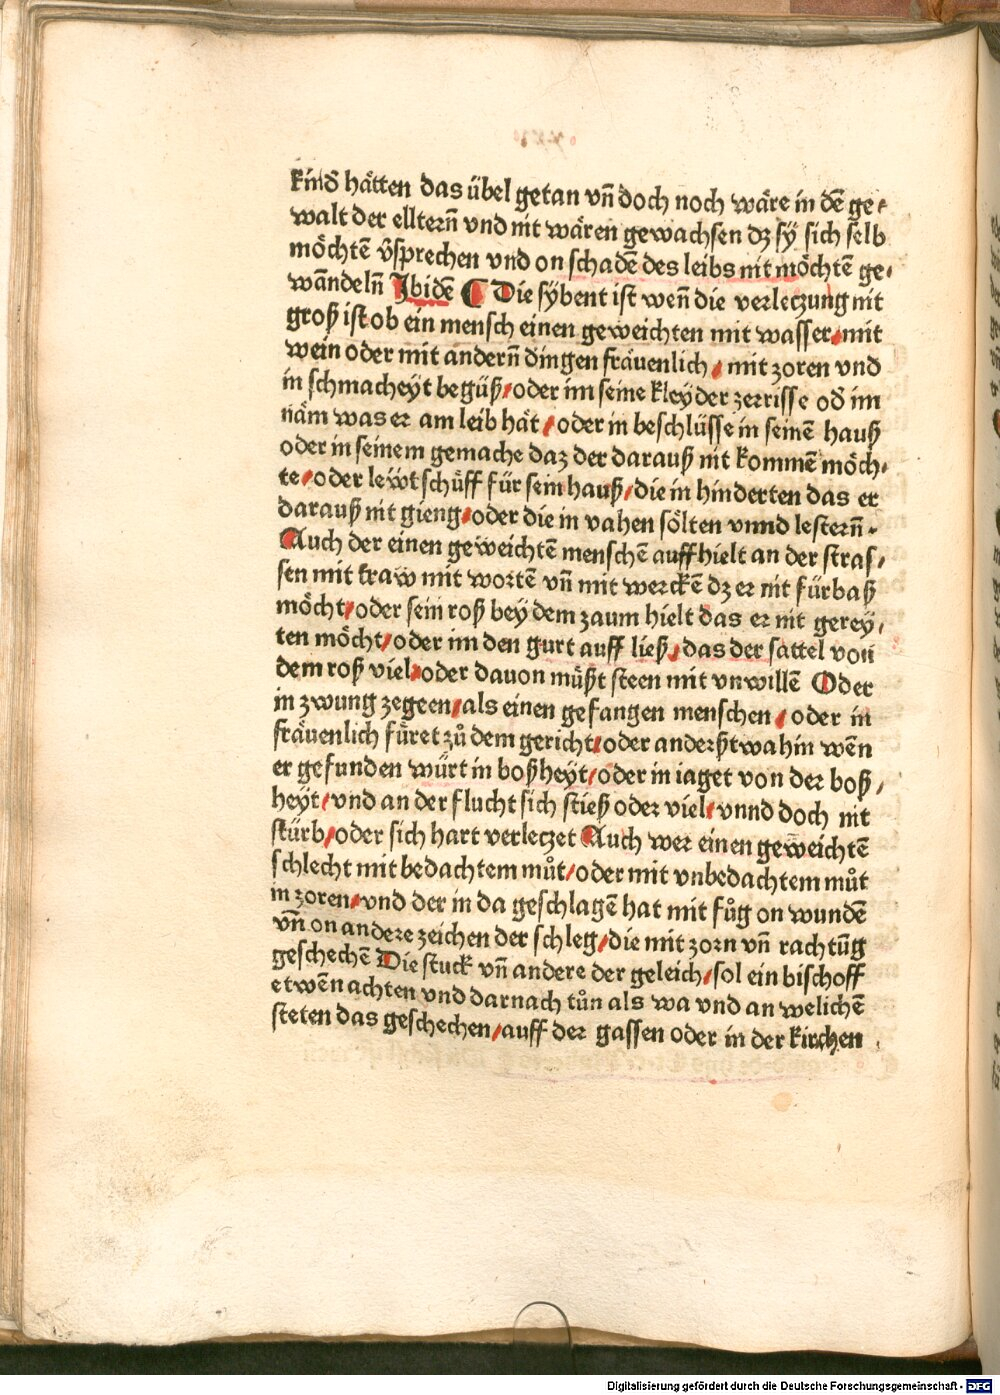 kind hätten das übel getan vn̄ doch noch wäre in dē ge-
walt der elltern̄ vnd nit wären gewachsen dz sÿ sich selb
möchtē v̄sprechen vnd on schadē des leibs nit möchtē ge-
wandeln̄ Ibidē ¶ Die sÿbent ist wen̄ die verleczung nit
groß ist ob ein mensch einen geweichten mit wasser / mit
wein oder mit andern̄ dingen fräuenlich / mit zoren vnd
in schmacheÿt begüß / oder im seine kleÿder zerrisse od̄ im
näm was er am leib hät / oder in beschlüsse in seinē hauß
oder in seinem gemache daz der darauß nit kommē möch-
te / oder lewt schüff für sein hauß / die in hinderten das er
darauß nit gieng / oder die in vahen sölten vnnd lestern̄ .
Auch der einen geweichtē menschē auffhielt an der stras-
sen mit traw mit wortē vn̄ mit werckē dz er nit fürbaß
möcht / oder sein roß beÿ dem zaum hielt das er nit gereÿ-
ten möcht / oder im den gurt auff ließ / das der sattel von
dem roß viel / oder dauon müßt steen mit vnwillē Oder
in zwung zegeen / als einen gefangen menschen / oder in
fräuenlich füret zů dem gericht / oder anderßtwahin wēn
er gefunden würt in boßheÿt / oder in iaget von der boß-
heÿt / vnd an der flucht sich stieß oder viel / vnnd doch nit
stürb / oder sich hart verleczet Auch wer einen geweichtē
schlecht mit bedachtem můt / oder mit vnbedachtem můt
in zoren / vnd der in da geschlagē hat mit fůg on wundē
vn̄ on andere zeichen der schleg / die mit zorn vn̄ rachtūg
geschechē Die stuck vn̄ andere der geleich / sol ein bischoff
etwēn achten vnd darnach tůn als wa vnd an welichē
steten das geschechen / auff der gassen oder in der kirchen
Digitalisierung gefördert durch die Deutsche Forschungsgemeinschaft - DFG